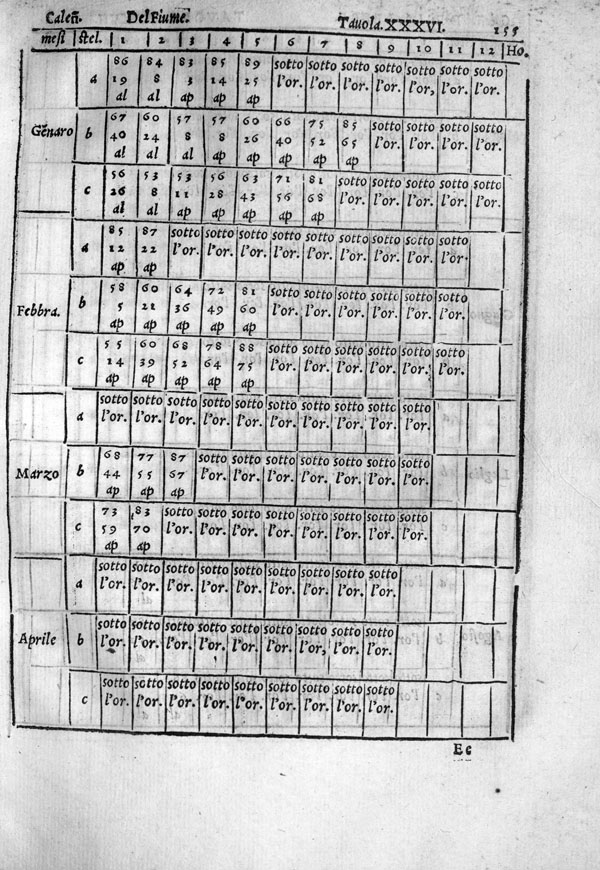 Caleñ. Del Fiume. Tauola.XXXVI. 155
mesi stel. 1 2 3 4 5 6 7 8 9 10 11 12 Ho.
86 84 83 85 89 sotto sotto sotto sotto sotto sotto sotto
a 19 8 3 14 25 l'or. l'or. l'or. l'or. l'or, l'or. l'or.
al al ap ap ap
67 60 57 57 60 66 75 85 sotto sotto sotto sotto
Gẽnaro b 40 24 8 8 26 40 52 65 l'or. l'or. l'or. l'or.
al al al ap ap ap ap ap
56 53 53 56 63 71 81 sotto sotto sotto sotto sotto
c 26 8 11 28 43 56 68 l'or. l'or. l'or. l'or. l'or.
al al ap ap ap ap ap
85 87 sotto sotto sotto sotto sotto sotto sotto sotto sotto
a 12 22 l'or. l'or. l'or. l'or. l'or. l'or. l'or. l'or. l'or.
ap ap
58 60 64 72 81 sotto sotto sotto sotto sotto sotto
Febbra. b 5 21 36 49 60 l'or. l'or. l'or. l'or. l'or. l'or.
ap ap ap ap ap
55 60 68 78 88 sotto sotto sotto sotto sotto sotto
c 14 39 52 64 75 l'or. l'or. l'or. l'or. l'or. l'or.
ap ap ap ap ap
sotto sotto sotto sotto sotto sotto sotto sotto sotto sotto
a l'or. l'or. l'or. l'or. l'or. l'or. l'or. l'or. l'or. l'or.
68 77 87 sotto sotto sotto sotto sotto sotto sotto
Marzo b 44 55 67 l'or. l'or. l'or. l'or. l'or. l'or. l'or.
ap ap ap
73 83 sotto sotto sotto sotto sotto sotto sotto sotto
c 59 70 l'or. l'or. l'or. l'or. l'or. l'or. l'or. l'or.
ap ap
sotto sotto sotto sotto sotto sotto sotto sotto sotto
a l'or. l'or. l'or. l'or. l'or. l'or. l'or. l'or. l'or.
sotto sotto sotto sotto sotto sotto sotto sotto sotto
Aprile b l'or. l'or. l'or. l'or. l'or. l'or. l'or, l'or. l'or.
sotto sotto sotto sotto sotto sotto sotto sotto sotto
c l'or. l'or. l'or. l'or. l'or. l'or. l'or. l'or. l'or.
Ee